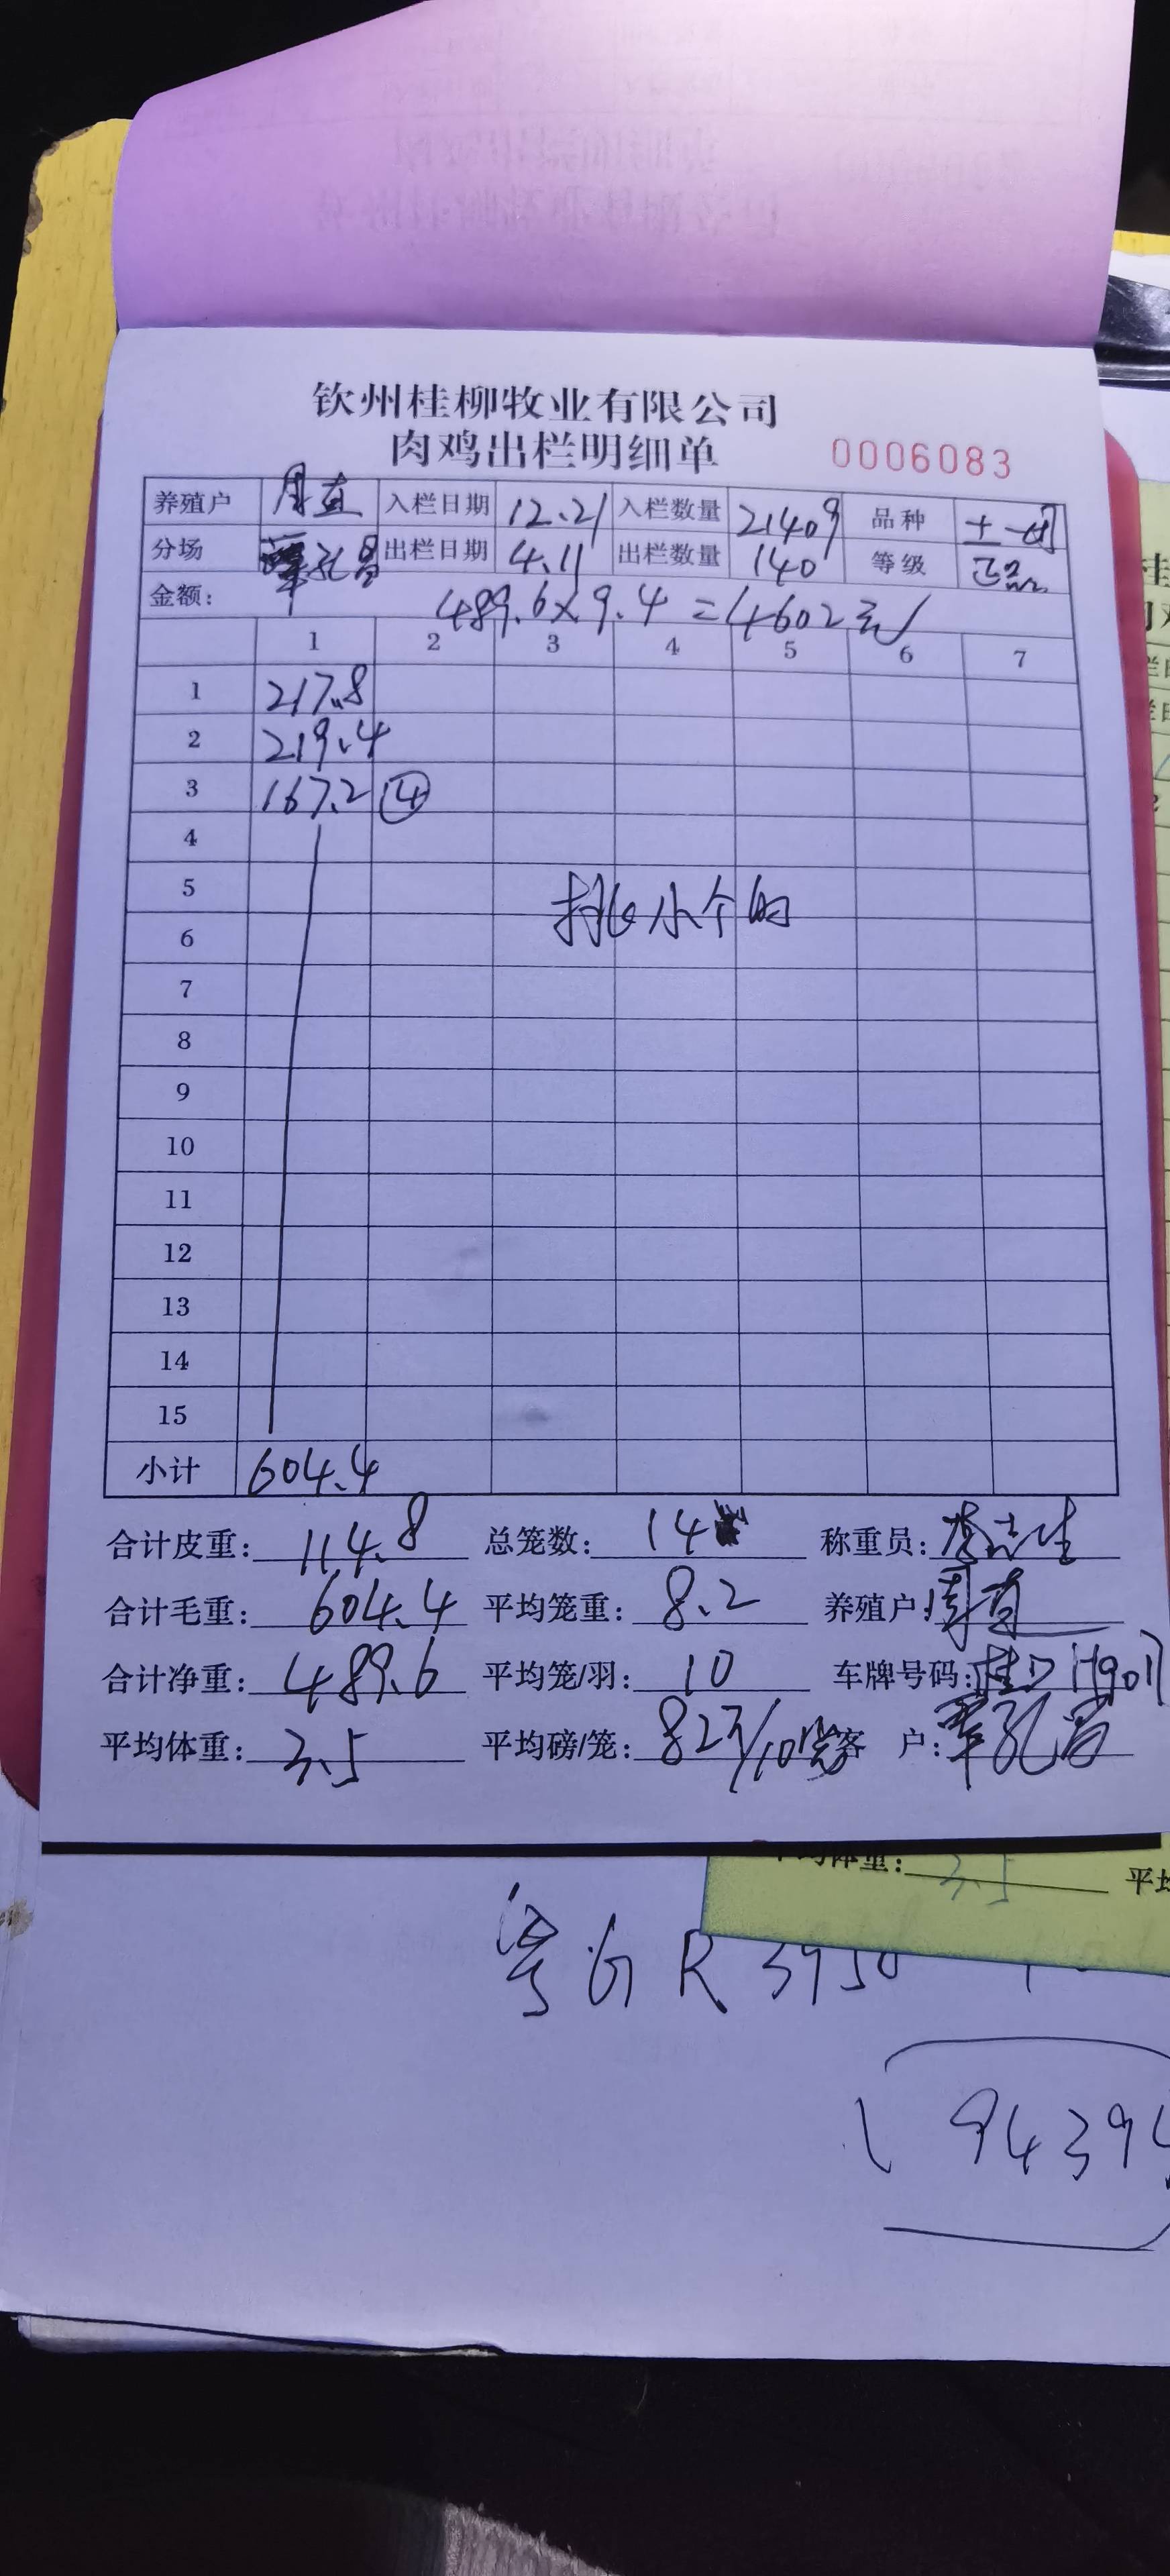 钦州桂柳牧业有限公司
肉鸡出栏明细单 0006083
养殖户 周直 入栏日期 12.21 入栏数量 21409 品种 土一
分场 覃孔昌 出栏日期 4.11 出栏数量 140 等级 正品
金额: 489.6×9.4=4602元
1 2 3 4 5 6 7
1 217.8
2 219.4
3 167.2 ④
4
5 挑小个的
6
7
8
9
10
11
12
13
14
15
小计 604.4
合计皮重: 114.8 总笼数: 14 称重员: 李志生
合计毛重: 604.4 平均笼重: 8.2 养殖户: 周直
合计净重: 489.6 平均笼/羽: 10 车牌号码: 桂
平均体重: 3.5 平均磅/笼: 82 客 户: 覃孔昌
平均体重: 3.5 平均
粤G R3950
94394